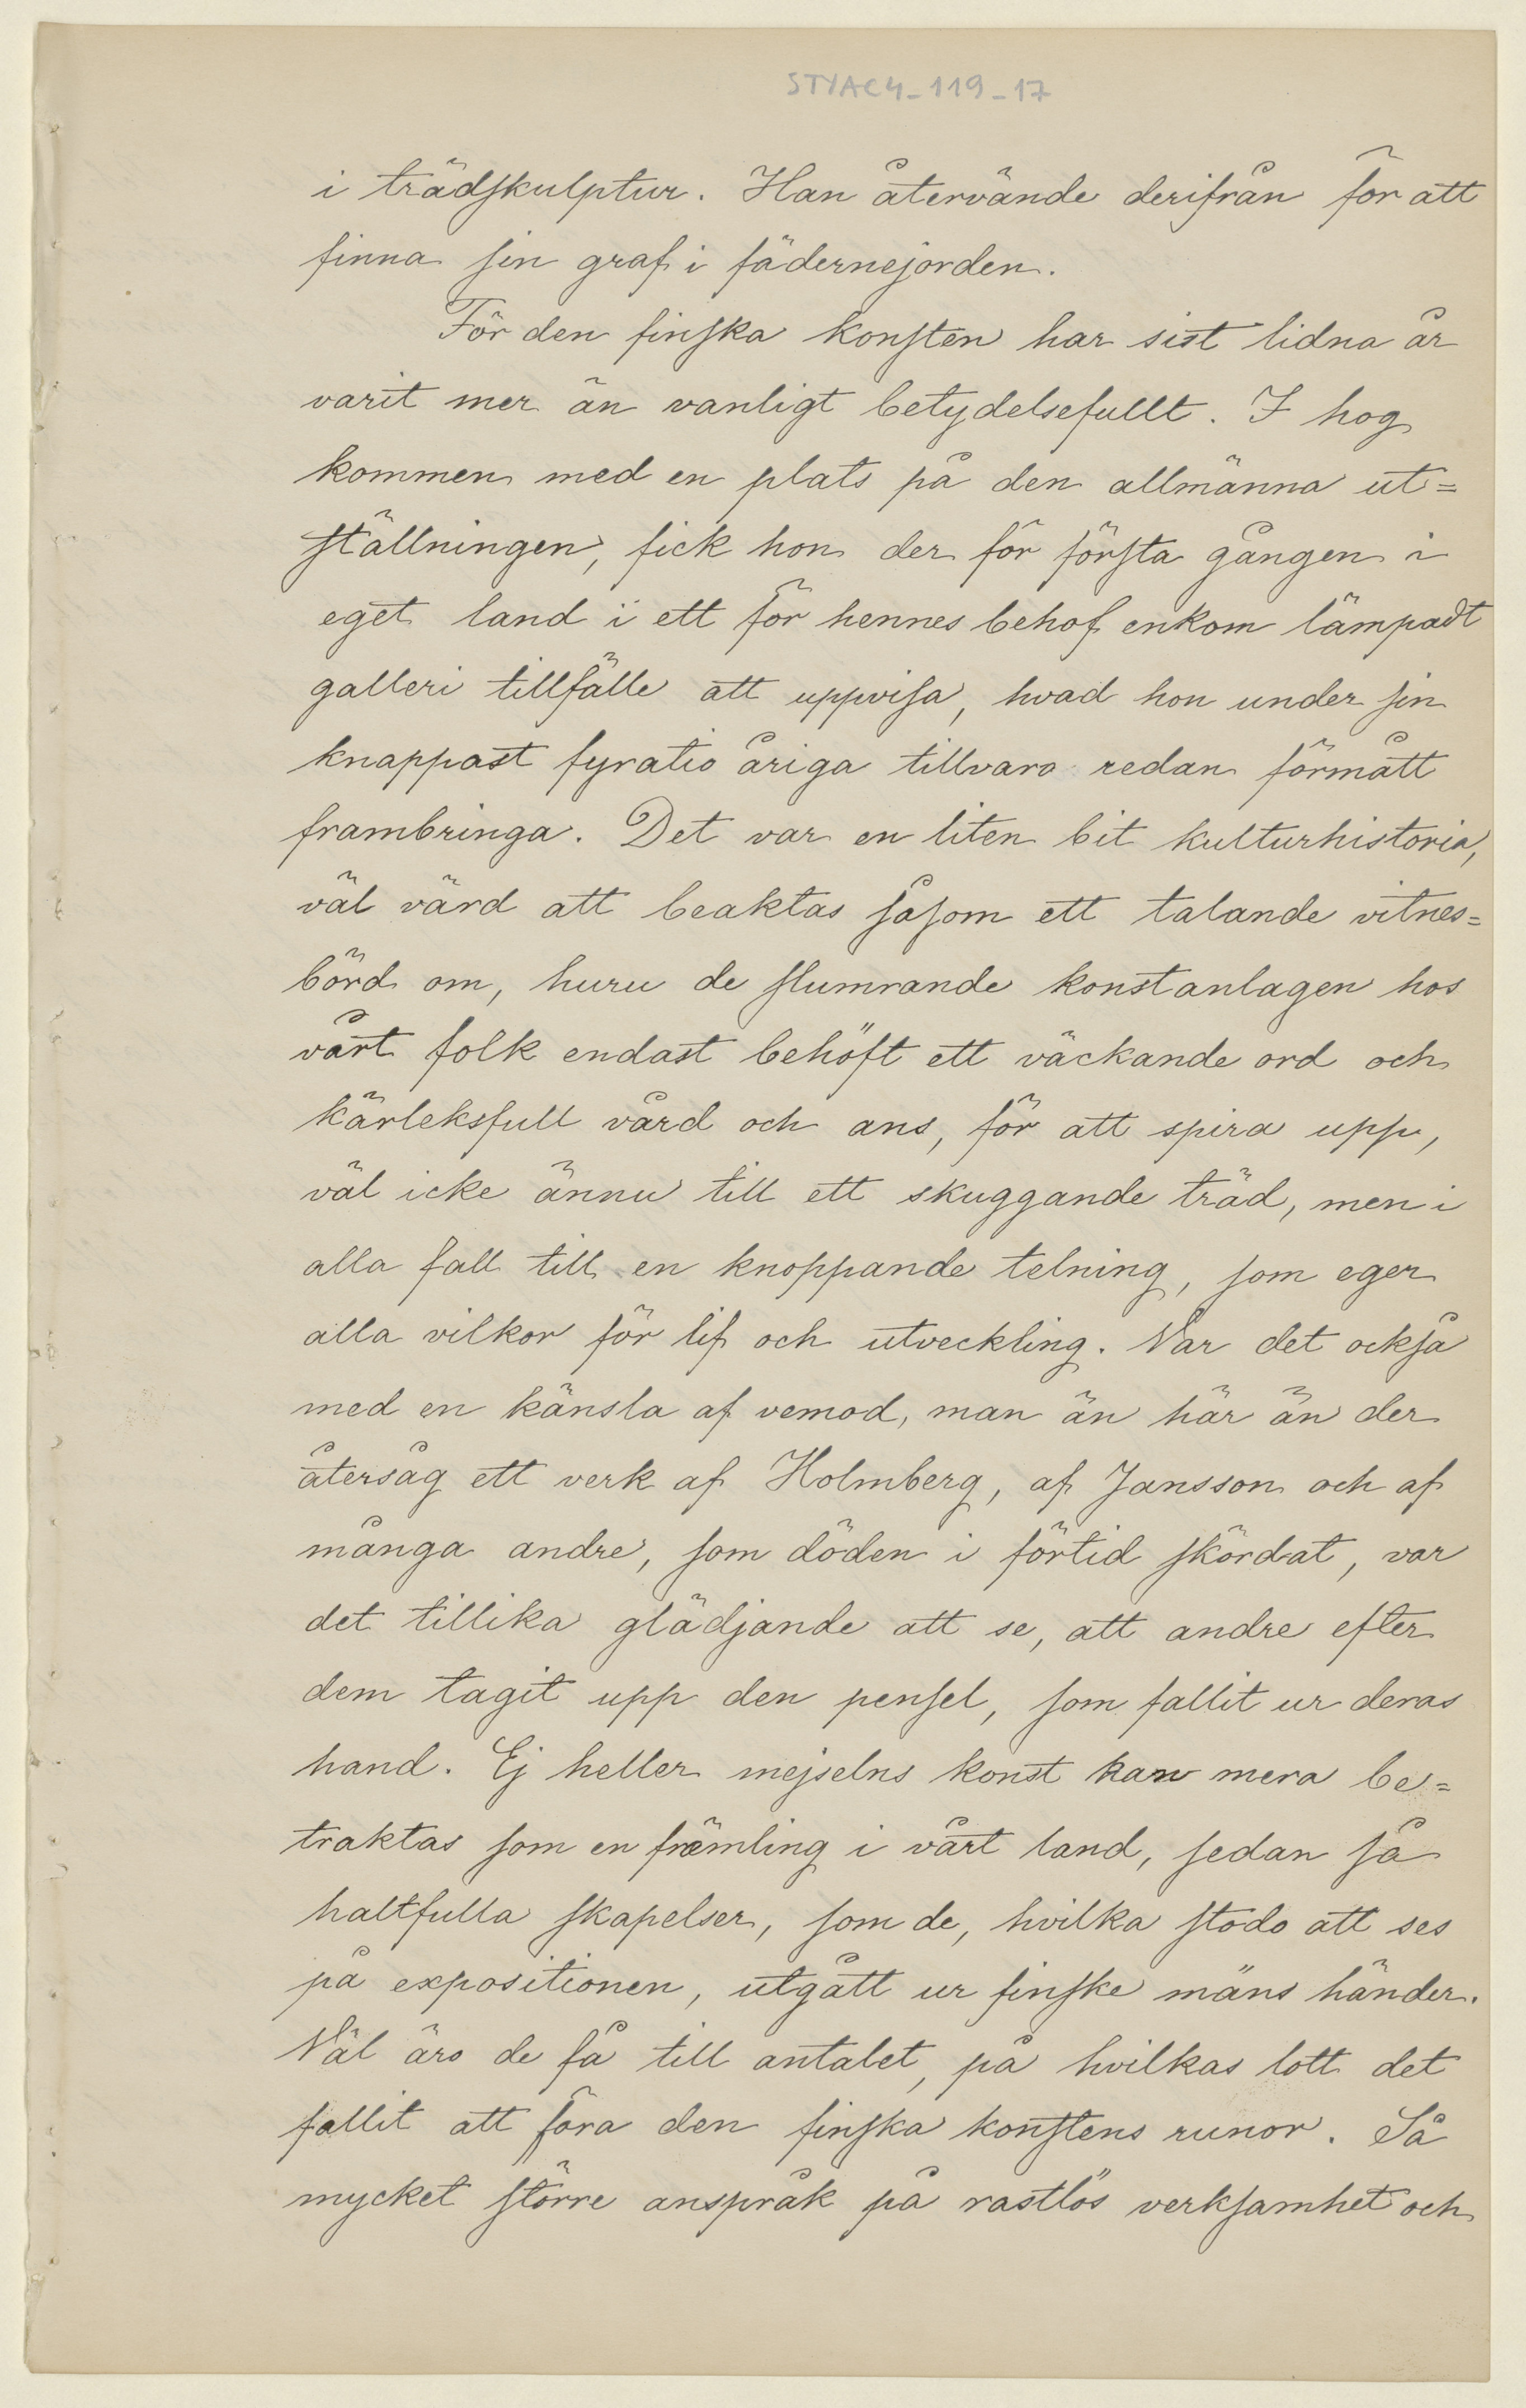 STYAC4_119_17
i trädskulptur. Han återvände derifrån för att
finna sin graf i fädernejorden.
För den finska konsten har sist lidna år
varit mer än vanligt betydelsefullt. I hog
kommen med en plats på den allmänna ut=
ställningen, fick hon der för första gången i
eget land i ett för hennes behof enkom lämpadt
galleri tillfälle att uppvisa, hvad hon under sin
knappast fyratio åriga tillvaro redan förmått
frambringa. Det var en liten bit kulturhistoria,
väl värd att beaktas såsom ett talande vitnes=
börd om, huru de slumrande konstanlagen hos
vårt folk endast behöft ett väckande ord och
kärleksfull vård och ans, för att spira upp,
väl icke ännu till ett skuggande träd, men i
alla fall till en knoppande telning, som eger
alla vilkor för lif och utveckling. Var det också
med en känsla af vemod, man än här än der
återsåg ett verk af Holmberg, af Jansson och af
många andre, som döden i förtid skördat, var
det tillika glädjande att se, att andre efter
dem tagit upp den pensel, som fallit ur deras
hand. Ej heller mejselns konst kan mera be=
traktas som en främling i vårt land, sedan så
haltfulla skapelser, som de, hvilka stodo att ses
på expositionen, utgått ur finske mäns händer.
Väl äro de få till antalet, på hvilkas lott det
fallit att föra den finska konstens runor. Så
mycket större anspråk på rastlös verksamhet och